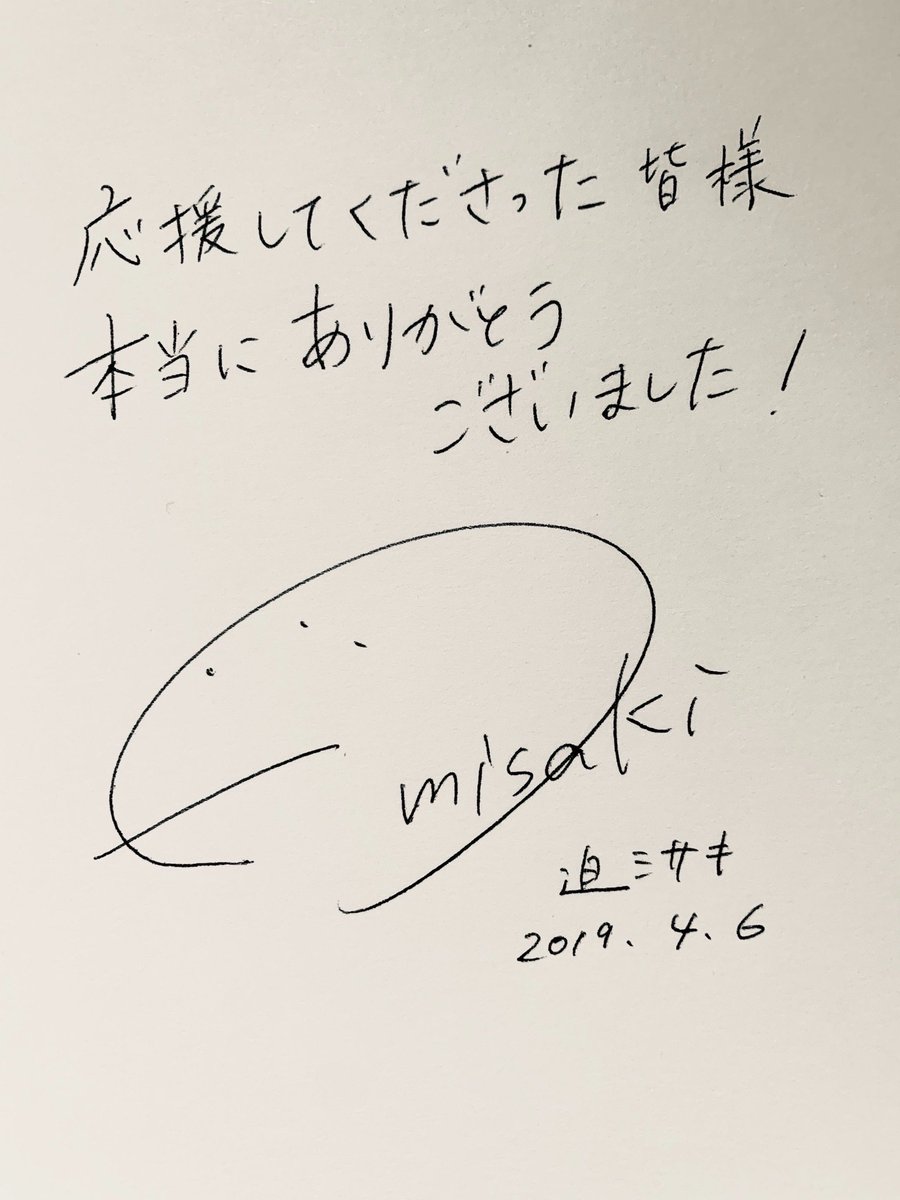 応援してくださった皆様
本当にありがとう
ございました！
misaki
迫ミサキ
2019.4.6